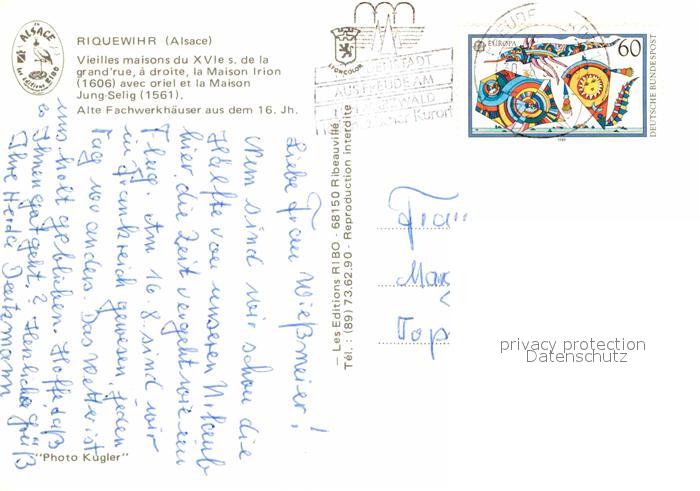 ALSACE
les éditions RIBO
RIQUEWIHR (Alsace)
Vieilles maisons du XVIe s. de la
grand'rue, à droite, la Maison Irion
(1606) avec oriel et la Maison
Jung-Selig (1561).
Alte Fachwerkhäuser aus dem 16. Jh.
LYONCOLOR
AM
WALD
Kurort
EUROPA
60
DEUTSCHE BUNDESPOST
1989
Liebe Frau Wießmeier!
Nun sind wir schon die
Hälfte von unseren Urlaub
hier. die Zeit vergeht wie im
Flug. Am 16.8. sind wir
in Frankreich gewesen, jeden
Tag wo anders. Das Wetter ist
uns holt geblieben. Hoffe, daß
es Ihnen gut geht? Herzliche Grüß
Ihre Herta
— Les Editions RIBO - 68150 Ribeauvillé -
Tél.: (89) 73.62.90 - Reproduction interdite
Frau
Mar
Top
privacy protection
Datenschutz
"Photo Kugler"